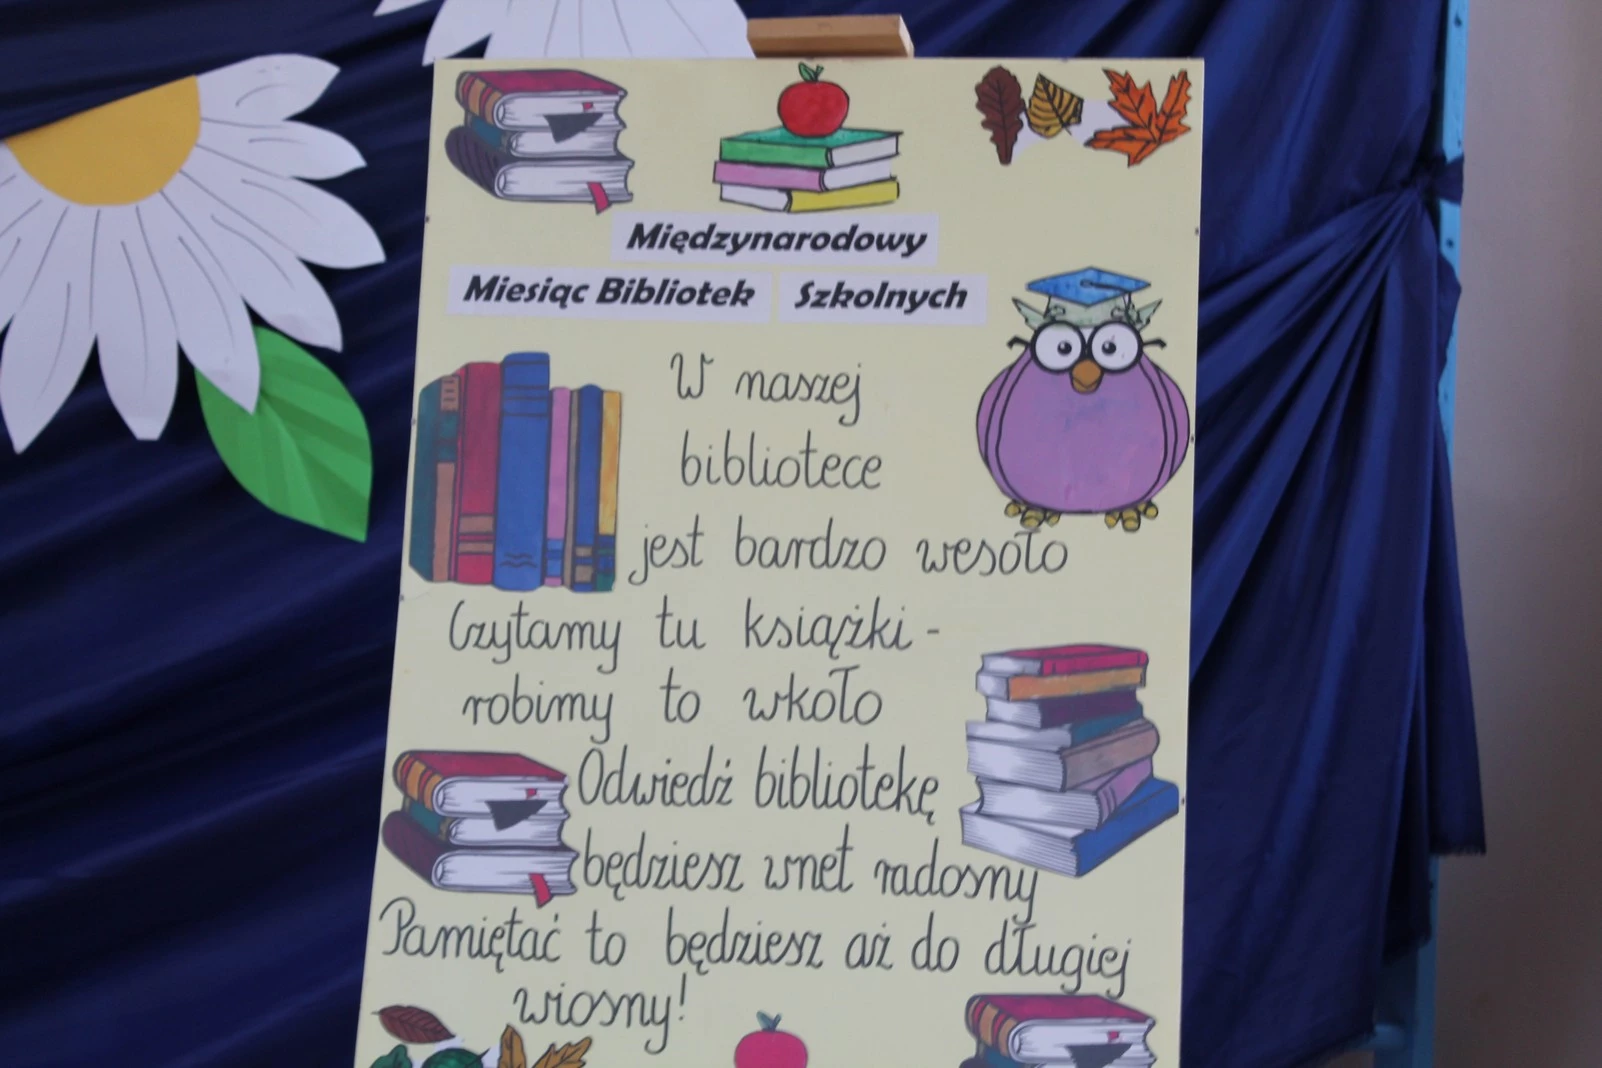 Międzynarodowy
Miesiąc Bibliotek Szkolnych
W naszej
bibliotece
jest bardzo wesoło
Czytamy tu książki -
robimy to wkoło
Odwiedź bibliotekę
będziesz wnet radosny
Pamiętać to będziesz aż do długiej
wiosny!